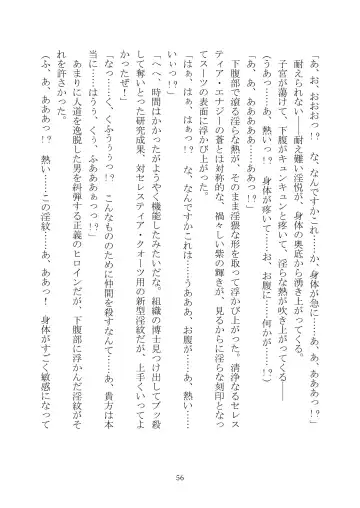 「あ、お、おおおっ！？　な、なんですかこれ……か、身体が急に……あ、あ、あああっ！？」
　耐えられない――耐え難い淫悦が、身体の奥底から湧き上がってくる。
　子宮が蕩けて、下腹がキュンキュンと疼いて、淫らな熱が吹き上がってくる――
（うあっ……あ、熱いっ！？　身体が疼いて……お、お腹に……何かが……っ！？）
「あ、あ、ああああ……ああっ！？」
　下腹部で滾る淫らな熱が、そのまま淫猥な形を取って浮かび上がる。清浄なるセレス
ティア・エナジーの蒼とは対称的な、禍々しい紫の輝きが、見るからに淫らな刻印となっ
てスーツの表面に浮かび上がった。
「はぁ、はぁ、はぁっ！？　な、なんですかこれは……うあああ、お腹が……あ、熱い……
っ！？」
「へへ、時間はかかったがようやく機能したみたいだな。組織の博士見つけ出してブッ殺
して奪いとった研究成果、対セレスティア・クォーツ用の新型淫紋だが、上手くいってよ
かったぜ！」
「なっ……く、くふぅぅぅっ！？　こんなもののために仲間を殺すなんて……あ、貴方は本
当に……はうぅ、くぅ、ふあああぁっっ！？」
　あまりに人道を逸脱した男を糾弾する正義のヒロインだが、下腹部に浮かんだ淫紋がそ
れを許さかった。
（ふ、あ、あああっ！？　熱い……この淫紋……あ、ああっ！　身体がすごく敏感になって
56